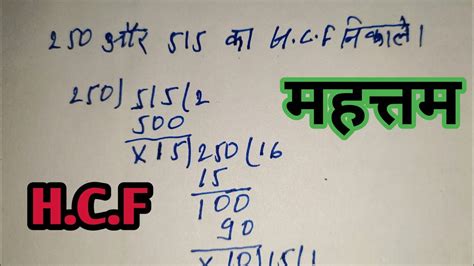 250 और 515 का H.C.F निकाले।
250) 515 (2
500
महत्तम
x 15) 250 (16
15
100
H.C.F
90
x 10) 15 (1